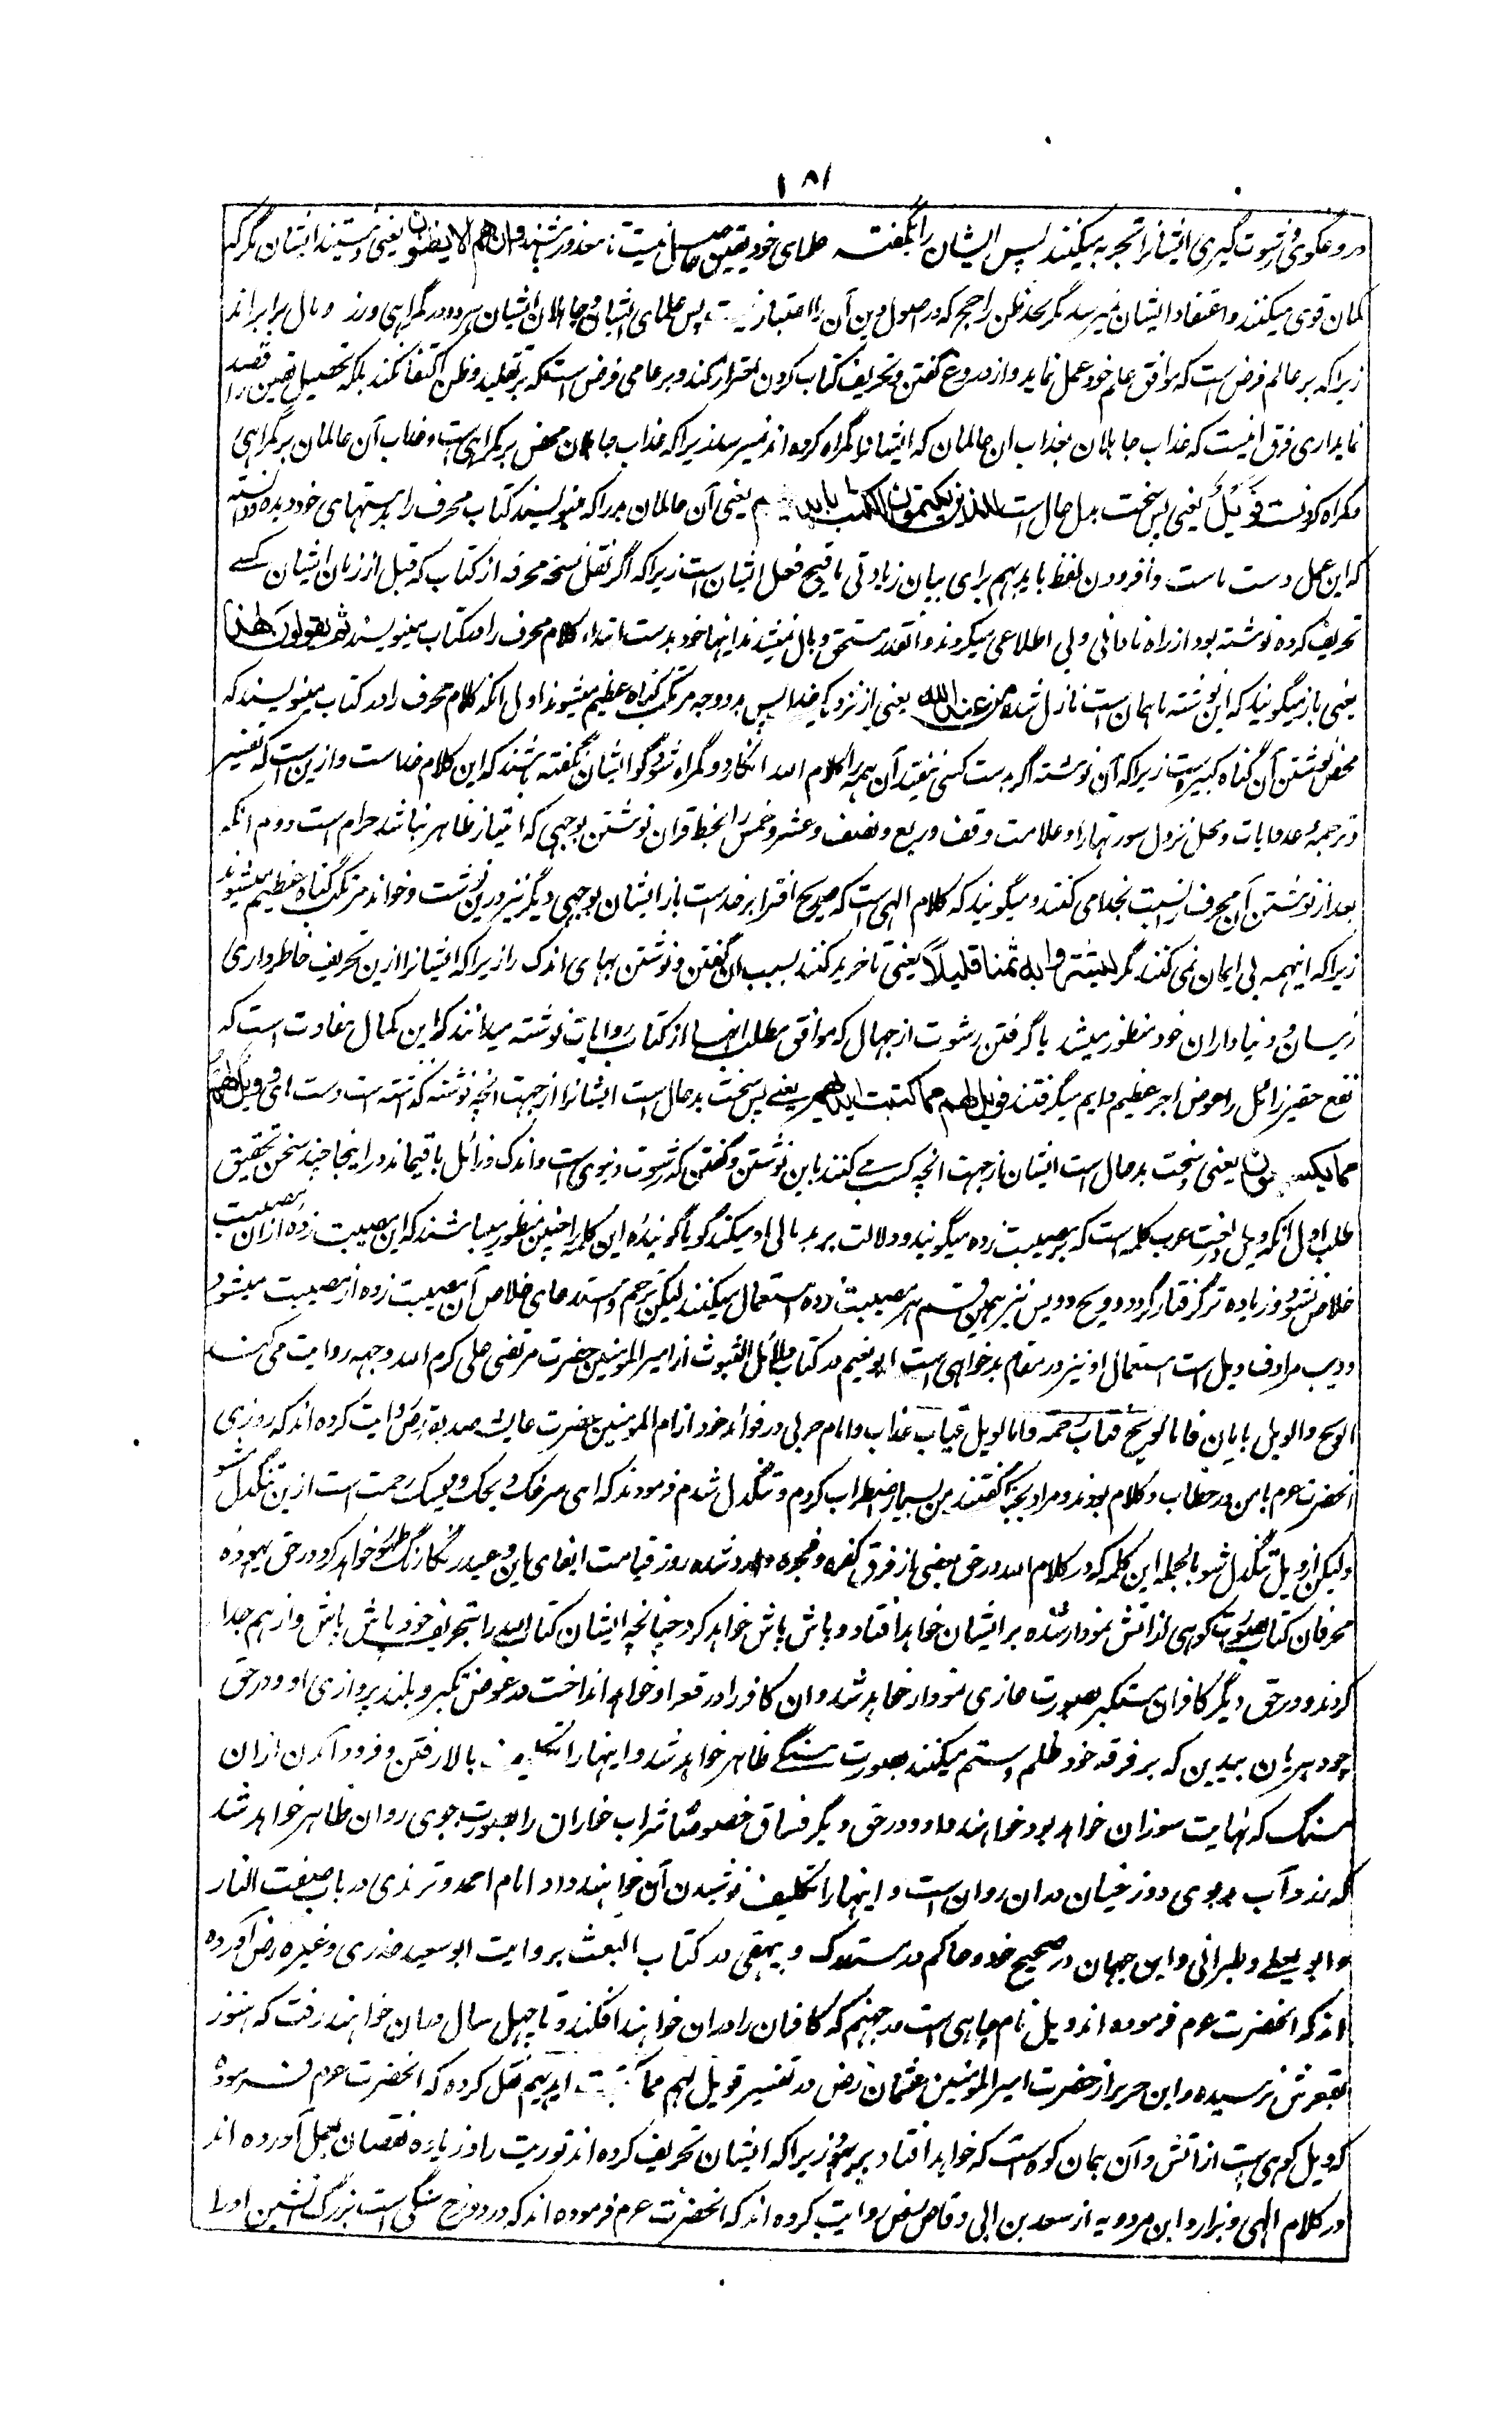 ۱۸۱
دروغگوئی و رشوت گیری ایشانرا تجربه میکنند پس ایشان را بگفته علمای خود یقین حاصل نیست تا معذور باشند وان هم الا یظنون یعنی و نیستند ایشان مگر که
گمان قوی میکنند و اعتقاد ایشان نمیرسد مگر بحد ظن راجح که در اصول دین آن را اعتبار نیست پس علمای ایشان و جاهلان ایشان هر دو در گمراهی و وزر و وبال برابر اند
زیرا که بر عالم فرض است که موافق علم خود عمل نماید و از دروغ گفتن و تحریف کتاب کردن احتراز کند و بر عامی فرض است که بر تقلید و ظن اکتفا نکند بلکه تحصیل یقین را قصد
نماید آری فرق اینست که عذاب جاهلان بعذاب آن عالمان که ایشانرا گمراه کرده اند نمیرسد زیرا که عذاب جاهلان محض بر گمراهی است و عذاب آن عالمان بر گمراهی
و گمراه کردنست فویل یعنی پس سخت بد حال است للذین یکتبون الکتب بایدیهم یعنی آن عالمان را که مینویسند کتاب محرف را بدستهای خود دیده و دانسته
که این عمل دست ماست و افزودن لفظ بایدیهم برای بیان زیادتی قبح فعل ایشان است زیرا که اگر نقل نسخه محرفه از کتاب که قبل از زمان ایشان کسے
تحریف کرده نوشته بود از راه نادانی و بی اطلاعی میکردند آنقدر مستحق وبال نمیشدند اینها خود بدست ابتداء کلام محرف را در کتاب مینویسند ثم یقولون هذا
یعنی باز میگویند که این نوشته ما همان است نازل شده من عند الله یعنی از نزدیک خدا پس بدو وجه مرتکب گناه عظیم میشوند اول آنکه کلام محرف را در کتاب مینویسند که
محض نوشتن آن گناه کبیره است زیرا که آن نوشته اگر بدست کسی بیفتد آن همه را کلام الله انگارد و گمراه شود گو ایشان نگفته باشند که این کلام خداست و ازین است که تفسیر
و ترجمه و عدد آیات و محل نزول سورتها را و علامت وقف و ربع و نصف و عشر و خمس را بخط قران نوشتن بوجهی که امتیاز ظاهر نباشد حرام است دوم آنکه
بعد از نوشتن آن محرف را نسبت بخدا می کنند و میگویند که کلام الهی است که صریح افترا بر خداست باز ایشان بوجهی دیگر نیز درین نوشت و خواند مرتکب گناه عظیم میشوند
زیرا که اینهمه بی ایمانی نمی کنند مگر لیشتروا به ثمنا قلیلا یعنی تا خرید کنند بسبب آن گفتن و نوشتن بهای اندک را زیرا که ایشانرا ازین تحریف خاطرداری
رئیسان و دنیاداران خود منظور میشد یا گرفتن رشوت از جهال که موافق مطلب اینها از کتاب روایات نوشته میدادند که این کمال شقاوت است که
نفع حقیر زائل را عوض اجر عظیم دایم میگرفتند فویل لهم مما کتبت ایدیهم یعنے پس سخت بد حال است ایشانرا از جهت آنچه نوشته گذشته است دست های وویل لهم
مما یکسبون یعنی و سخت بد حال است ایشان را از جهت آنچه کسب می کنند باین نوشتن و گفتن که رشوت دنیوی است و اندک و زائل باقیماند در اینجا چند سخن تحقیق
طلب اول آنکه ویل در لغت عرب کلمه است که بر مصیبت زده میگویند و دلالت بر بد حالی او میکند گویا گوینده این کلمه را چنین منظور میباشد که این مصیبت زده ازان مصیبت
خلاص نشود و زیاده تر گرفتار گردد و ویح و ویس نیز همین قسم بر مصیبت زده استعمال میکنند لیکن ترحم و استدعای خلاص آن مصیبت زده از مصیبت میشود
و ویب مرادف ویل است استعمال او نیز در مقام بدخواهی است ابو نعیم در کتاب دلائل النبوت از امیر المومنین حضرت مرتضی علی کرم الله وجهه روایت می کند
الویح والویل بابان فاما الویح فباب رحمه واما الویل فباب عذاب و امام حربی در فوائد خود از ام المومنین حضرت عایشه صدیقه رض روایت کرده اند که روزی
آنحضرت صم با من در خطاب و کلام بودند و مرا ویحک گفتند من بسیار اضطراب کردم و تنگدل شدم فرمودند که ای حمیراء ویحک و ویسک رحمت است ازین تنگدل مشو
و لیکن از ویل تنگدل شو بالجمله این کلمه که در کلام الله در حق بعضی از فرق کفره و فجره وارد شده روز قیامت ایفای این وعید رنگارنگ ظهور خواهد کرد در حق یهود و
محرفان کتاب بصورت کوهی از آتش نمودار شده بر ایشان خواهد افتاد و پاش پاش خواهد کرد چنانچه ایشان کتاب الله را بتحریف خود پاش پاش و از هم جدا
کردند و در حق دیگر کافران مستکبر بصورت غاری نمودار خواهد شد و آن کافر را در قعر او خواهد انداخت در عوض تکبر و بلند پروازی او و در حق
چودهریان بیدین که بر فرقه خود ظلم و ستم میکنند بصورت سنگے ظاهر خواهد شد و اینها را تکلیف بالا رفتن و فرود آمدن ازان
سنگ که نهایت سوزان خواهد بود خواهند داد و در حق دیگر فساق خصوصاً شراب خواران را بصورت جوی روان ظاهر خواهد شد
که زرد آب بدبوی دوزخیان دران روان است و اینها را تکلیف نوشیدن آن خواهند داد امام احمد و ترمذی در باب صفت النار
و ابو یعلے و طبرانی و ابن حبان در صحیح خود و حاکم در مستدرک و بیهقی در کتاب البعث بروایت ابو سعید خدری و غیره رض آورده
اند که آنحضرت صم فرموده اند ویل نام چاهی است در جهنم که کافران را دران خواهند افکند و تا چهل سال دران خواهند رفت که هنوز
بقعرش نرسیده و ابن جریر از حضرت امیر المومنین عثمان رض در تفسیر فویل لهم مما کتبت ایدیهم نقل کرده که آنحضرت صم فرموده
که ویل کوهی است از آتش و آن همان کوه است که خواهد افتاد بر یهود زیرا که ایشان تحریف کرده اند توریت را و زیاده نقصان بعمل آورده اند
در کلام الهی و بزار و ابن مردویه از سعد بن ابی وقاص رض روایت کرده اند که آنحضرت صم فرموده اند که در دوزخ سنگی است بزرگ آتشین او را